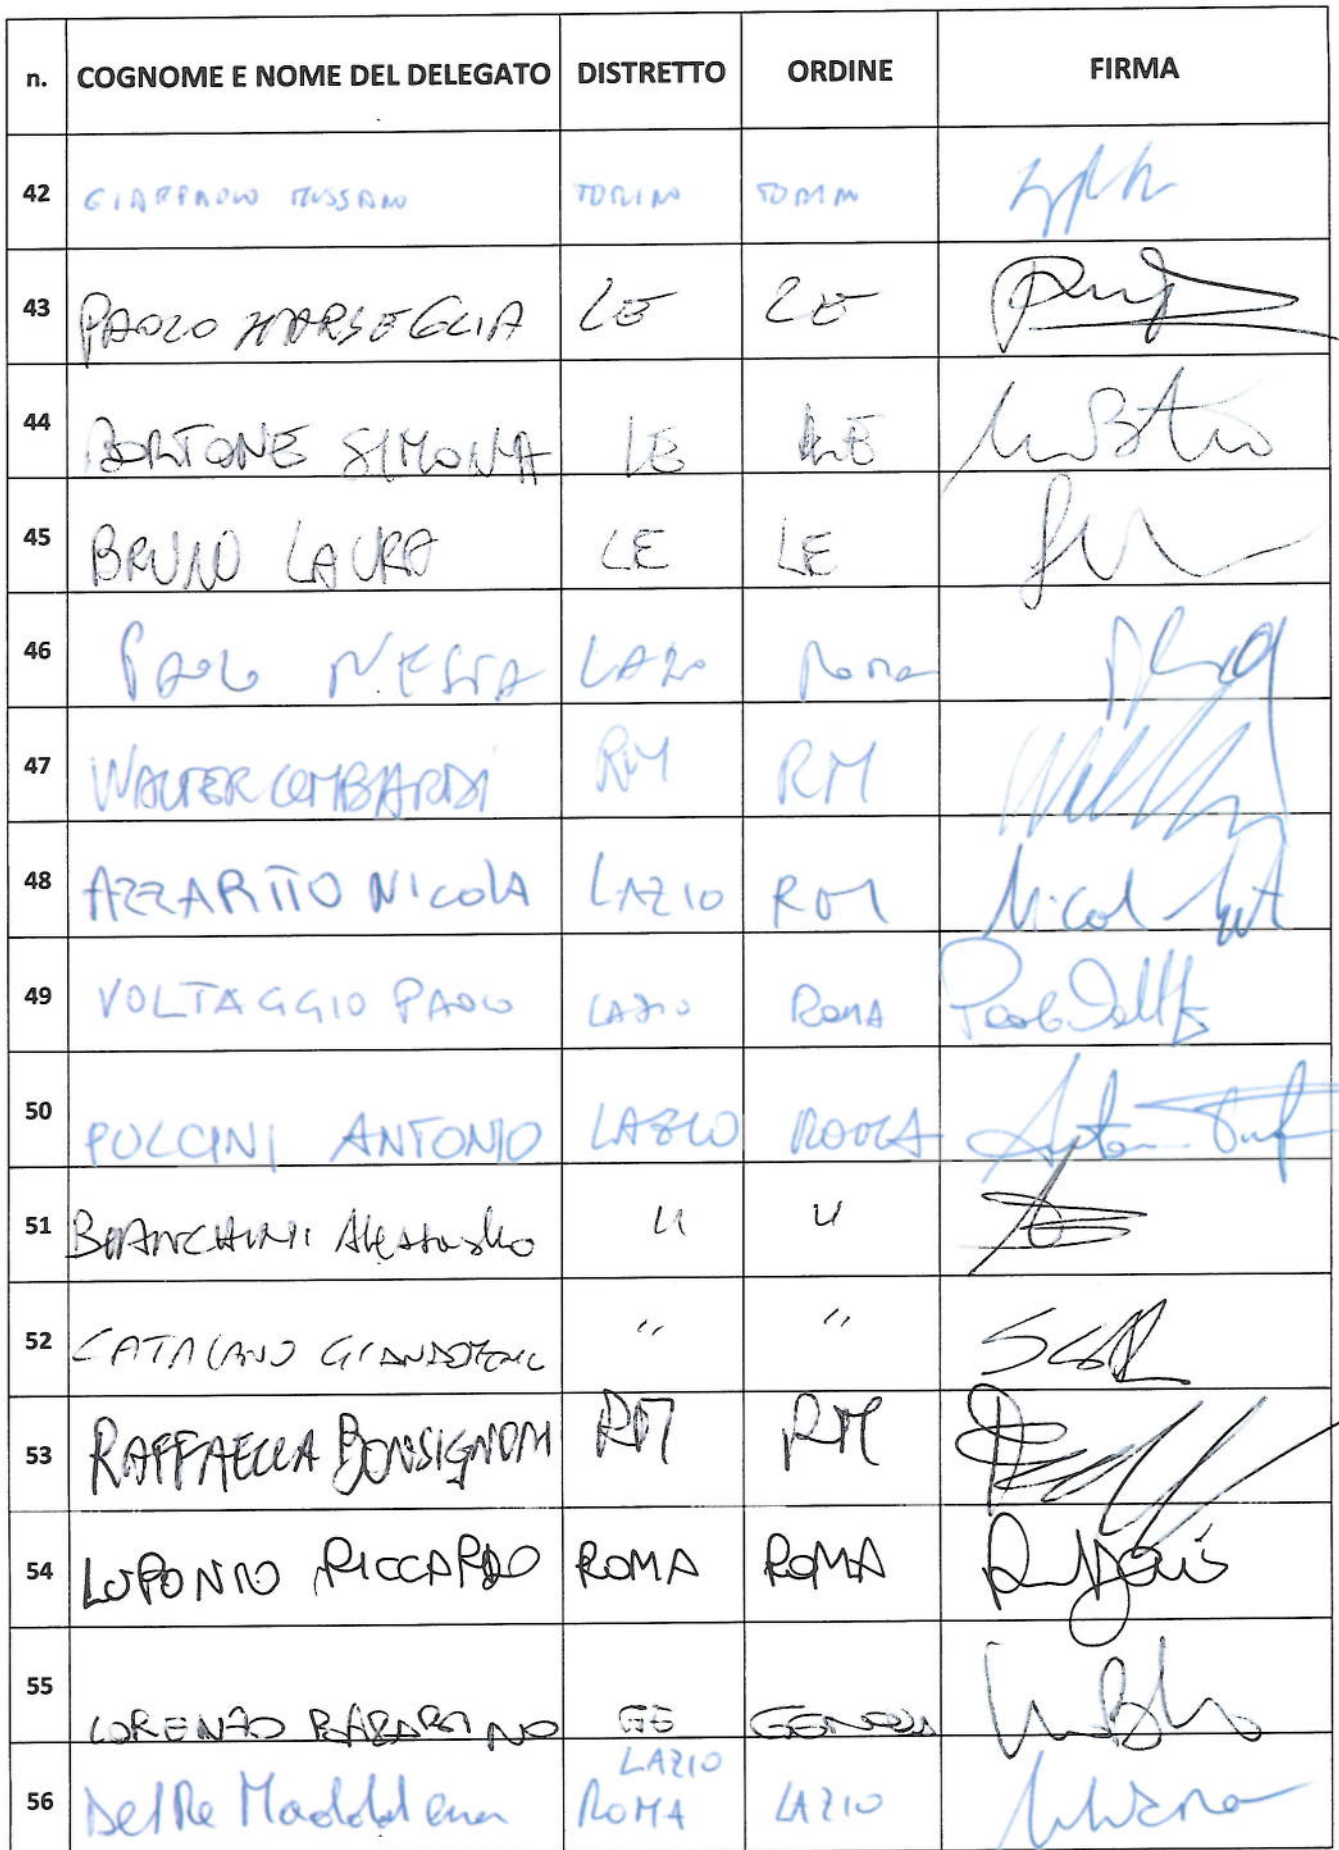 n. COGNOME E NOME DEL DELEGATO DISTRETTO ORDINE FIRMA
42 GIANPAOLO MUSSANO TORINO TORINO
43 PAOLO MARSEGLIA LE LE
44 BORTONE SIMONA LE LE
45 BRUNO LAURA LE LE
46 PAOLO NESTA LAZIO Roma
47 WALTER LOMBARDI RM RM
48 AZZARITTO NICOLA LAZIO ROM
49 VOLTAGGIO PAOLO LAZIO ROMA
50 PULCINI ANTONIO LAZIO ROMA
51 BIANCHINI Alessandro " "
52 CATALANO " "
53 RAFFAELLA BONSIGNORI RM RM
54 RICCARDO ROMA ROMA
55 LORENZO BARABINO GE GENOVA
LAZIO
56 Del Re Maddalena ROMA LAZIO